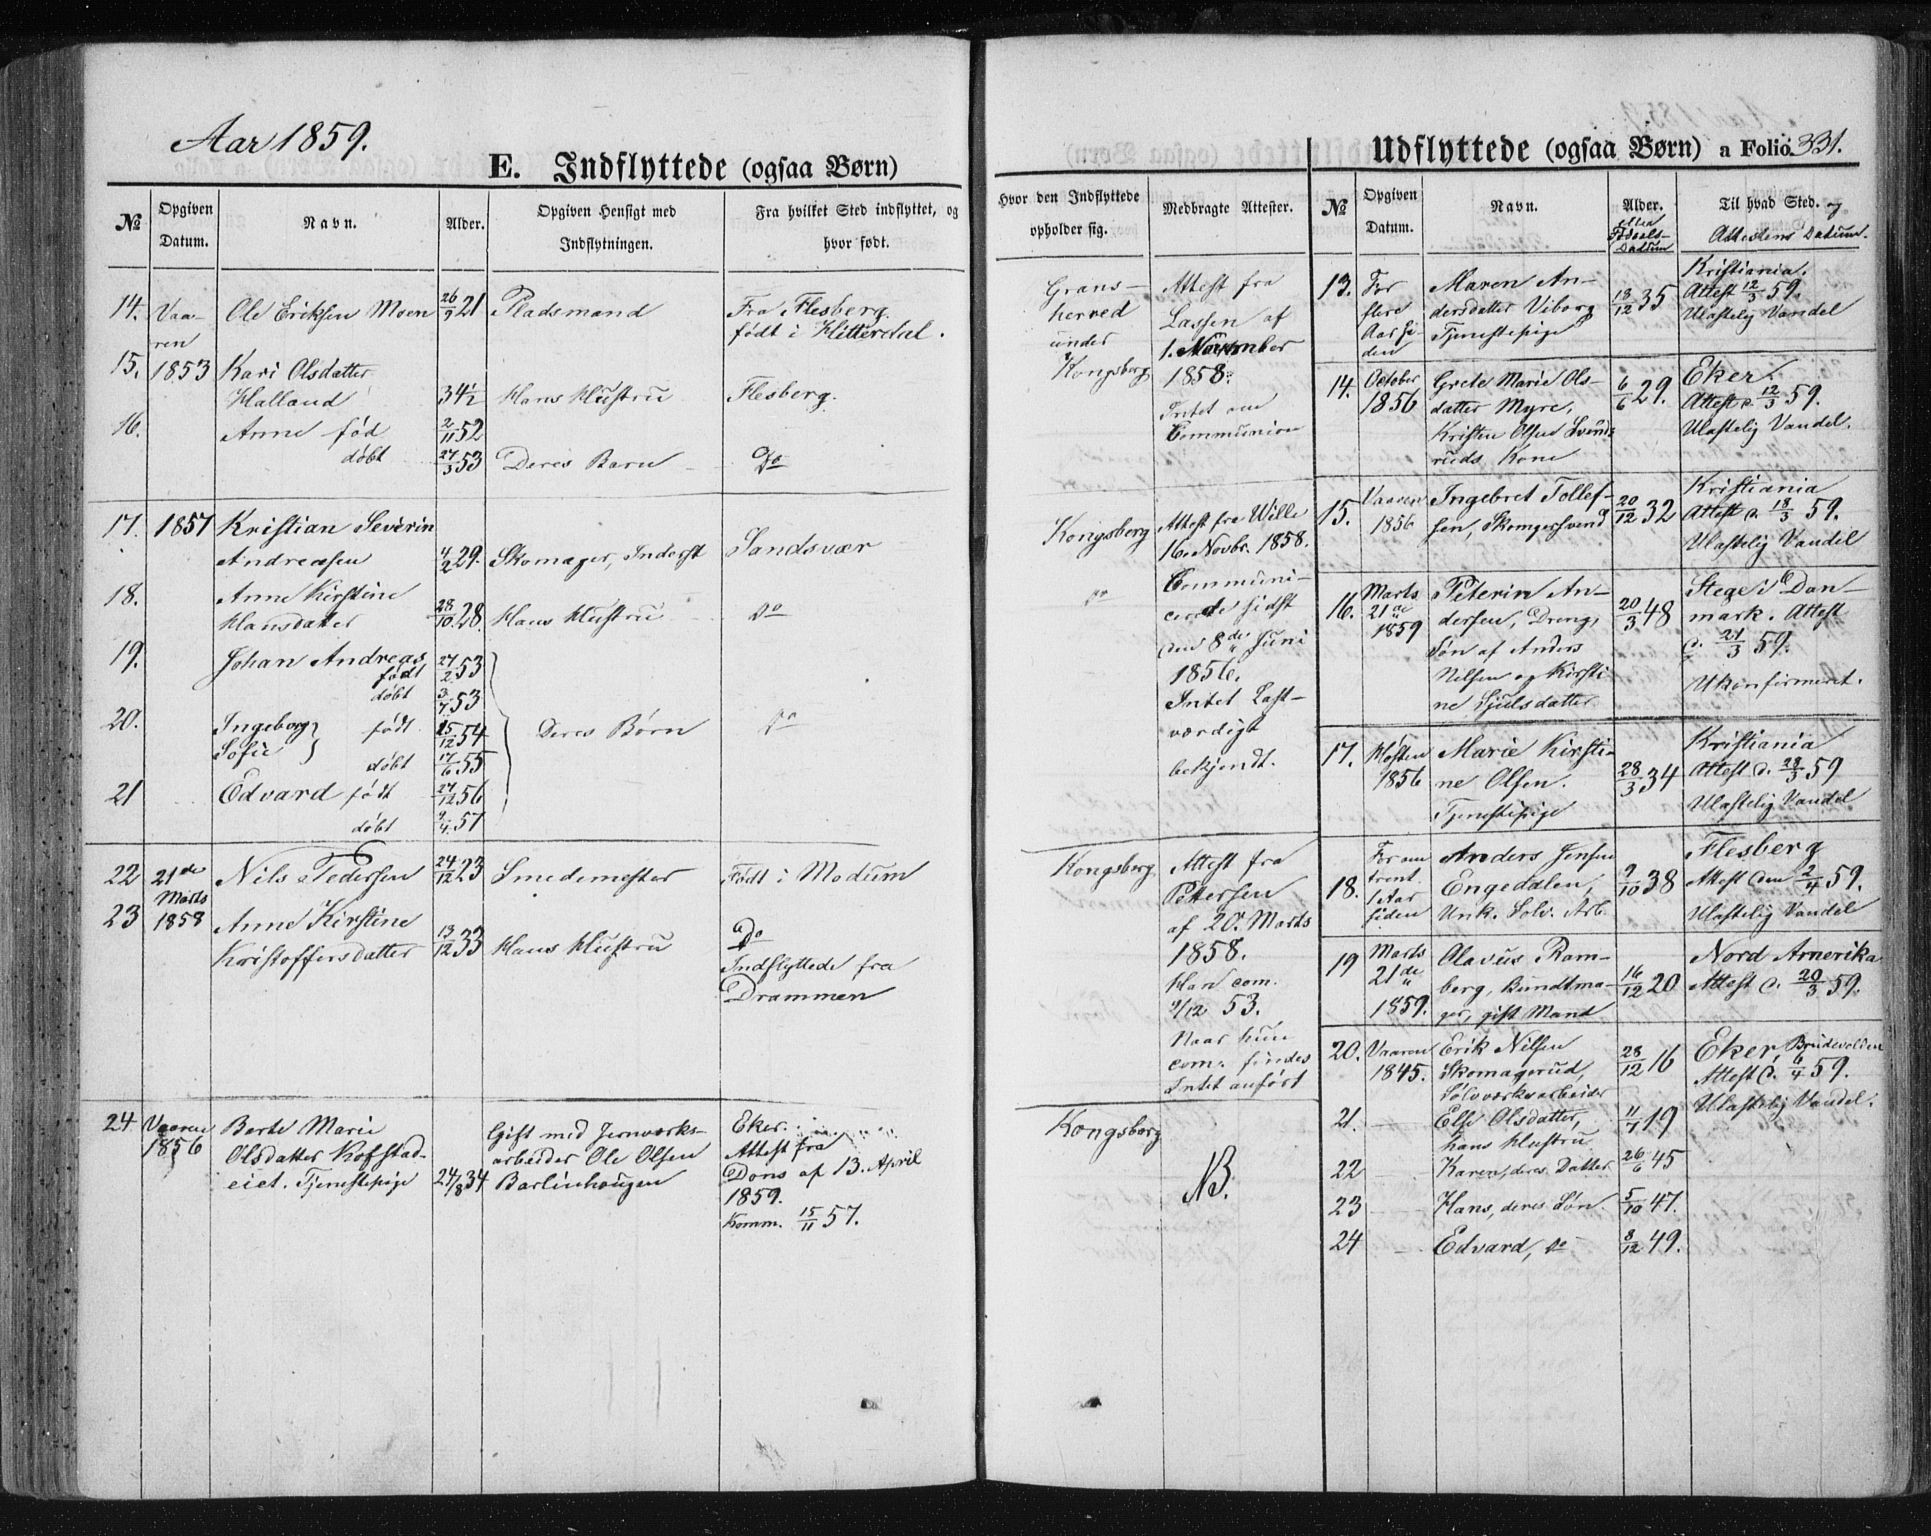 Aar 1859.
E. Indflyttede (ogsaa Børn)
№
Opgiven Datum.
Navn.
Alder.
Opgiven Hensigt med Indflytningen.
Fra hvilket Sted indflyttet, og hvor født.
14. Vaa- Ole Eriksen Moen 26/9 21 Pladsmand Fra Flesberg.
ren født i Hitterdal.
15. 1853 Kari Olsdatter
Halland 34 1/2 Hans Hustru Flesberg.
16. Anne fød 2/11 52
døbt 27/3 53 Deres Barn Do
17. 1857 Kristian Severin
Andreasen 4/2 29. Skomager, Inderst Sandsvær
18. Anne Kirstine
Hansdatter 28/10 28. Hans Hustru Do
19. Johan Andreas
født 27/2 53
døbt 3/7 53
20. Ingeborg født 15/12 54 Deres Børn Do
Sofie døbt 17/6 55
21 Edvard født 27/12 56
døbt 9/4 57
22 21de Nils Pedersen 24/12 23 Smedemester Født i Modum
Marts
23 1858 Anne Kirstine
Kristoffersdatter 13/12 33 Hans Hustru Do
Indflyttede fra
Drammen
24 Vaaren Berte Marie Gift med Jernværks- Eker.
1856 Olsdatter Kofstad- arbeider Ole Olsen Attest fra
eiet. Tjenestepige 24/8 34 Barlinhougen Dons af 13. April
1859.
Komm. 15/11 57.
Hvor den Indflyttede opholder sig.
Medbragte Attester.
Grans-
herred
under
Kongsberg
Attest fra
Lassen af
1. November
1858.
Intet om
Communion
Kongsberg
Do
Attest fra Wille
16. Novbr. 1858.
Communi-
cerede sidst
den 8de Juni
1856.
Intet Last-
værdigt
bekjendt.
Kongsberg
Attest fra
Pettersen
af 20. Marts
1858.
Han com.
9/12 53.
Naar hun
com. findes
Intet anført
Kongsberg
NB.
Udflyttede (ogsaa Børn) a Folio 331.
№
Opgiven Datum.
Navn.
Alder.
eller
Fødsels-
Datum
Til hvad Sted. og
Attestens Datum.
13. For Maren An- Kristiania.
flere dersdatter Viborg 18/12 35 Attest 12/3 59.
Aar si- Tjenestepige Ulastelig Vandel
den
14. October Grete Marie Ols- 6/6 29. Eker.
1856 datter Myre, Attest d. 12/3 59.
Kristen Olsen Svends- Ulastelig Vandel.
ruds Kone
15. Vaaren Ingebret Tollef- 20/12 32 Kristiania
1856 sen, Skomgersvend Attest d. 18/3 59.
Ulastelig Vandel
16. Marts Peterin An- 20/3 48 Stege i Dan-
21de dersen, Dreng, mark. Attest
1859 Søn af Anders d. 21/3 59.
Nilsen og Kirsti- Ukonfirmeret.
ne Hjulsdatter
17. Høsten Marie Kirsti- Kristiania
1856 ne Olsen. 28/3 34 Attest d. 28/3 59
Tjenestepige Ulastelig Vandel
18. For om Anders Jensen Flesberg
trent Engedalen, 9/10 38 Attest den 2/4 59.
1 Aar Unk. Sølv. Arb. Ulastelig Vandel
siden
19 Marts Olavus Ram- Nord Amerika
21de berg, Bundtma- 16/12 20 Attest d. 20/3 59.
1859. ger, gift Mand
20. Vaaren Erik Nilsen 28/12 16 Eker, Brudevolden
1845. Skomagerud, Attest d. 6/4 59.
Sølvværksarbeider Ulastelig Vandel.
21. Else Olsdatter, 11/7 19
hans Hustru
22 Karen, deres Datter 26/6 45
23 Hans, deres Søn. 5/10 47.
24 Edvard, Do 8/12 49.